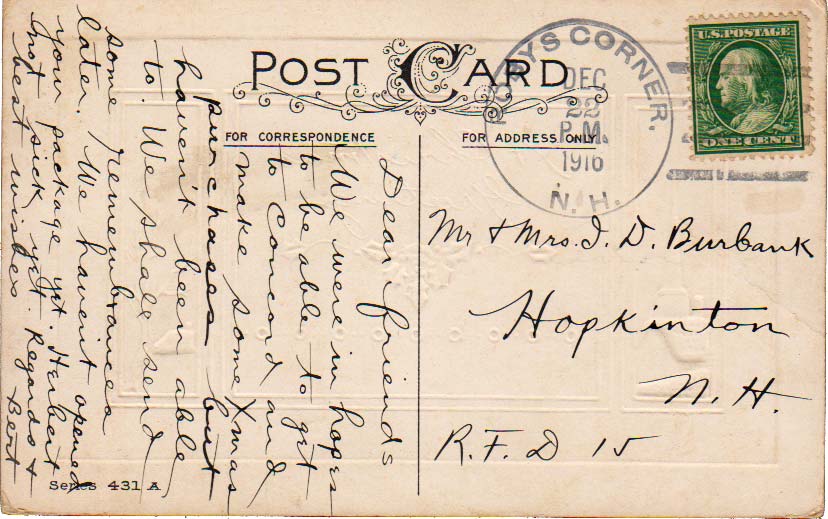 POST CARD
FOR CORRESPONDENCE
FOR ADDRESS ONLY
CORNER.
DEC
22
P.M.
1916
N.H.
U.S. POSTAGE
ONE CENT
Mr & Mrs. I. D. Burbank
Hopkinton
N. H.
R. F. D 15
Dear friends
We were in hopes
to be able to get
to Concord and
make some Xmas
purchases but
haven't been able
to. We shall send
some remembrances
later. We haven't opened
your package yet. Herbert
not sick yet. Regards &
best wishes. Bert
Series 431 A